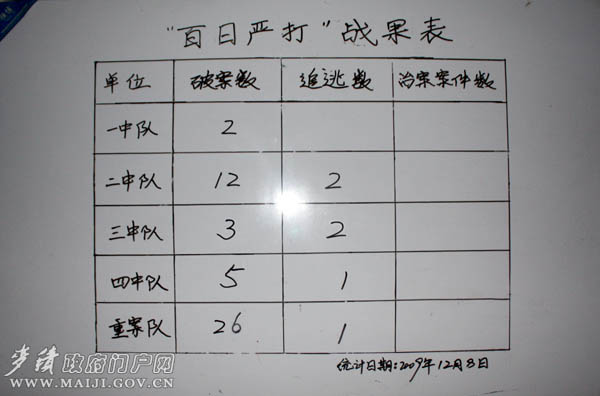 "百日严打"战果表
单位 破案数 追逃数 治案案件数
一中队 2
二中队 12 2
三中队 3 2
四中队 5 1
重案队 26 1
统计日期:2009年12月8日
麦积政府门户网
WWW.MAIJI.GOV.CN